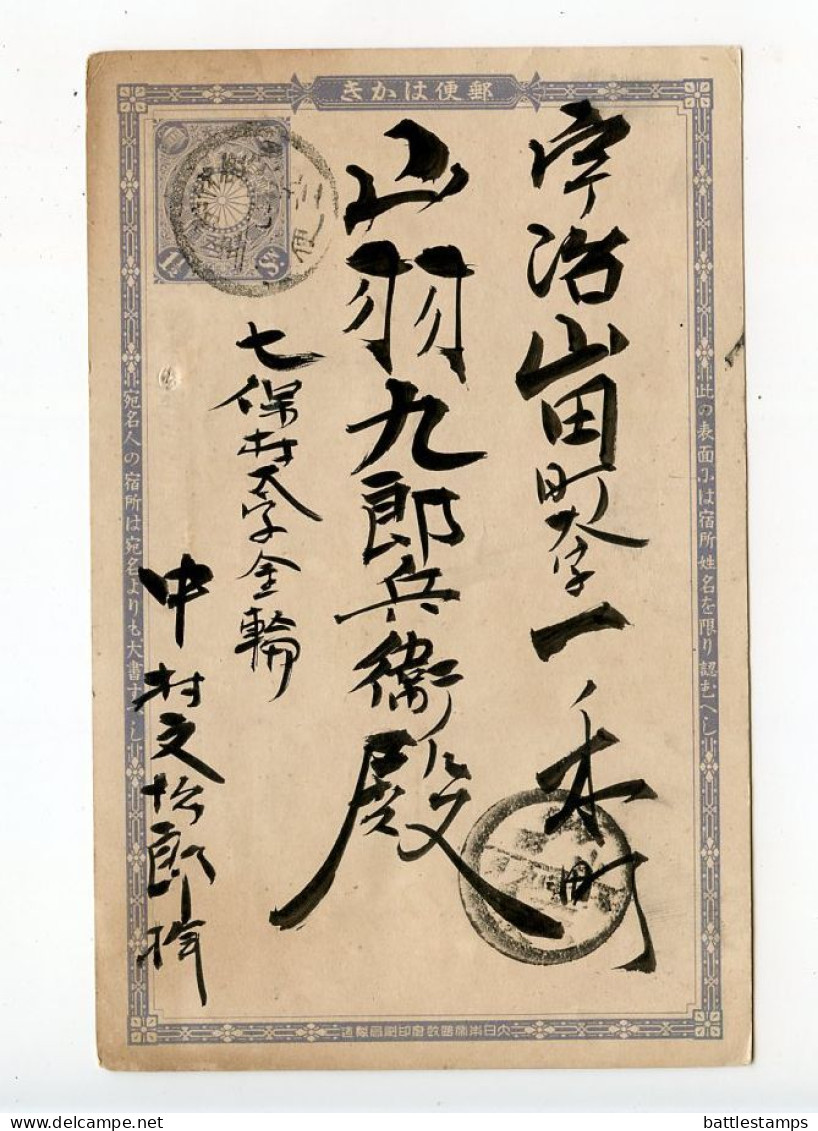 郵便はかき
此の表面には宿所姓名を限り認むへし
宇治山田町大字一ノ木町
山羽九郎兵衛殿
七保村大字金輪
中村文松郎
宛名人の宿所は宛名よりも大書すへし
1½ Sn.
大日本帝國政府印刷局製造
delcampe.net
battlestamps